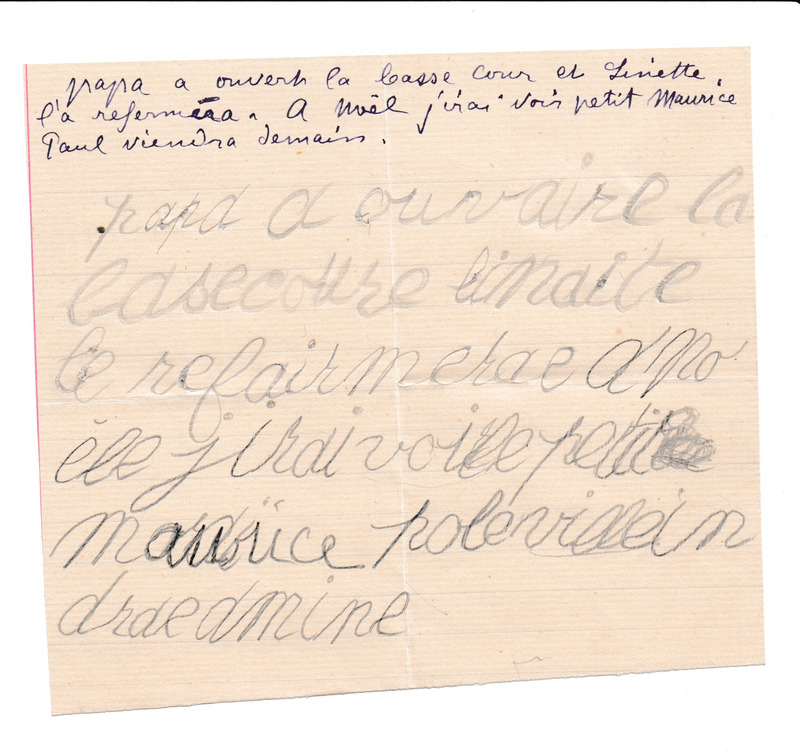 papa a ouvert la basse cour et Linette
l'a refermera. A Noël j'irai voir petit Maurice
Paul viendra demain.
papa a ouvaire la
basecoure linaite
le refairmerae a no
ële jirai voire petite
maurice polevidein
draedmine